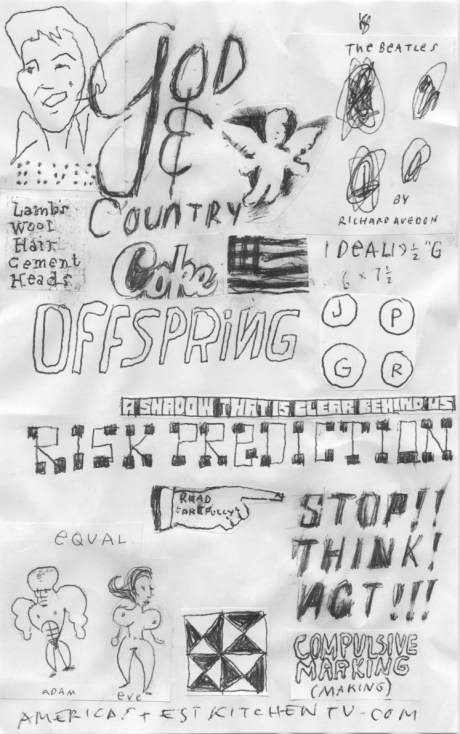 God
&
Country
The Beatles
BY
RICHARD AVEDON
Lambs
Wool
Hair
Cement
Heads
Coke
OFFSPRING
J P
G R
A SHADOW THAT IS CLEAR BEHIND US
RISK PREDICTION
READ
CAREFULLY
STOP!!
THINK!
ACT!!!
EQUAL
ADAM
eve
COMPULSIVE
MARKING
(MAKING)
AMERICASTESTKITCHENTV-COM